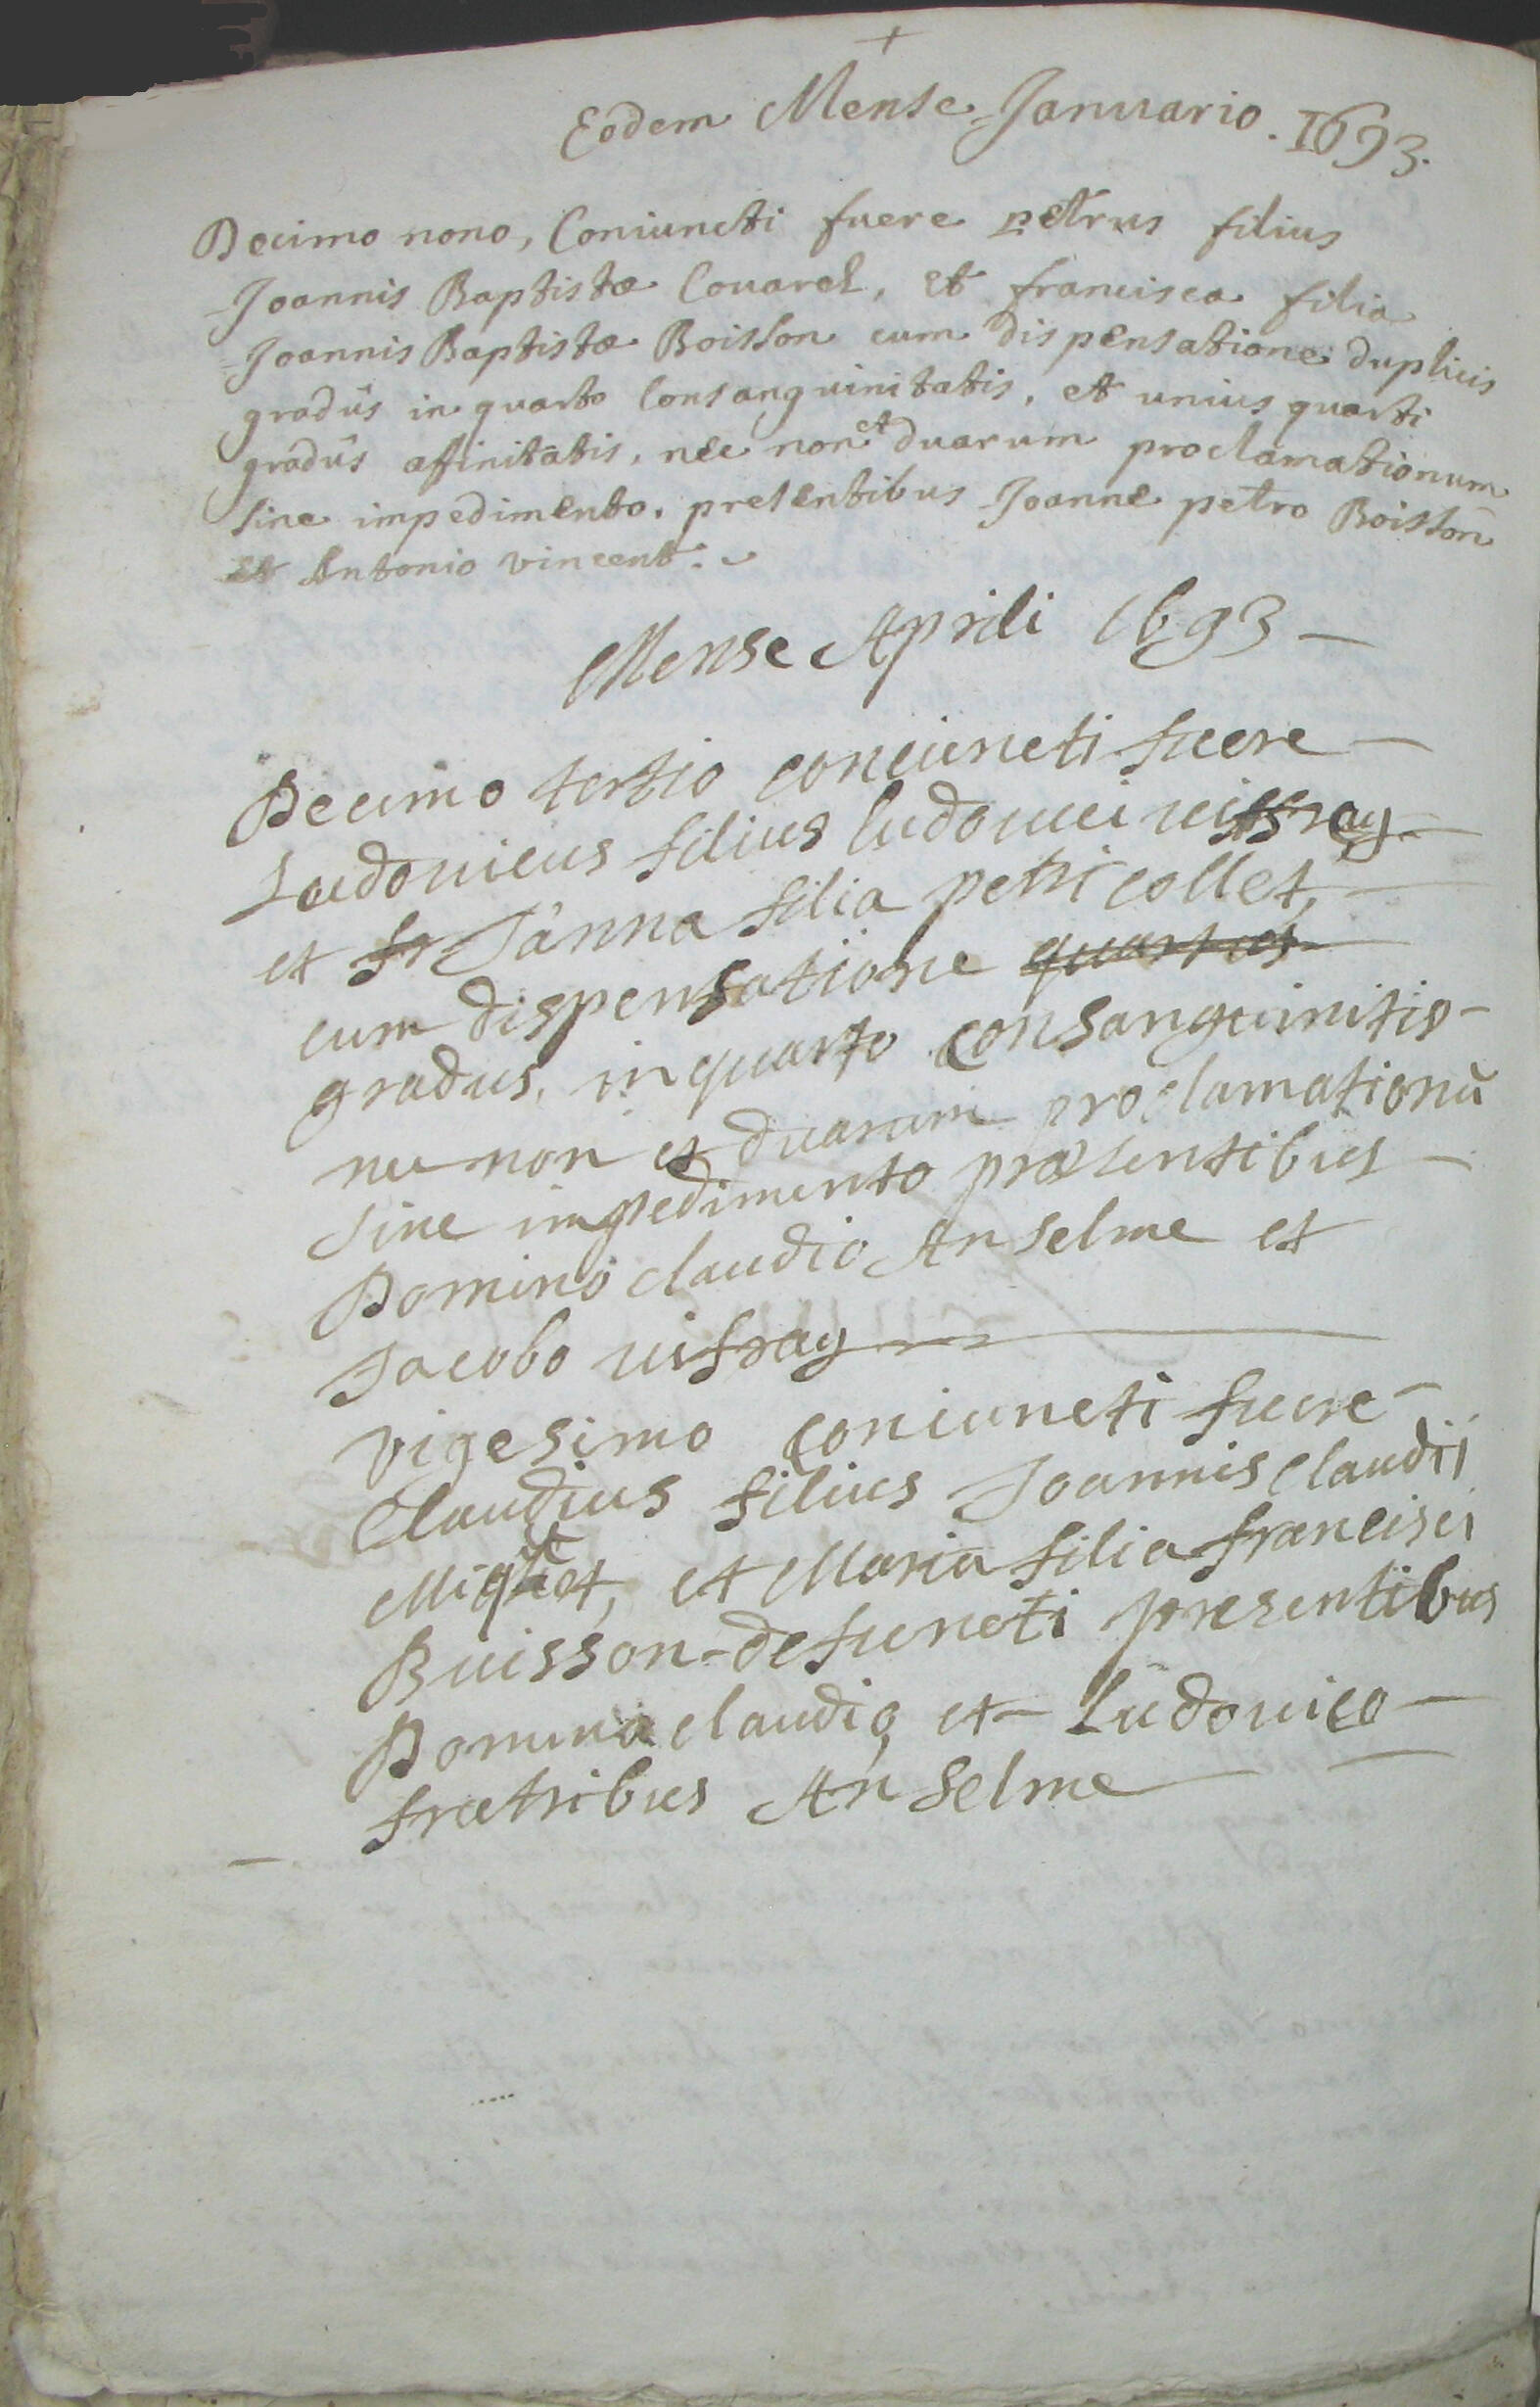 +
Eodem Mense Januario. 1693.
Decimo nono, Coniuncti fuere petrus filius
Joannis Baptistæ Couarel, et francisca filia
Joannis Baptistæ Boisson cum dispensatione duplicis
gradûs in quarto Consanguinitatis, et unius quarti
gradûs affinitatis, nec non et duarum proclamationum
sine impedimento. presentibus Joanne petro Boisson
et Antonio vincent.
Mense Aprili 1693 —
Decimo tertio coniuncti fuere —
Ludouicus filius ludouici uissray
et fr Janna filia petri collet, —
cum dispensatione quartus
gradus, in quarto consanguinitis —
nec non et duarum proclamationū
sine impedimento præsentibus —
Domino claudio Anselme et
Jacobo uisray
vigesimo coniuncti fuere —
Claudius filius Joannis Claudii
et Maria filia francisci
Buisson defuncti presentibus
Domino claudio, et Ludouico —
fratribus Anselme